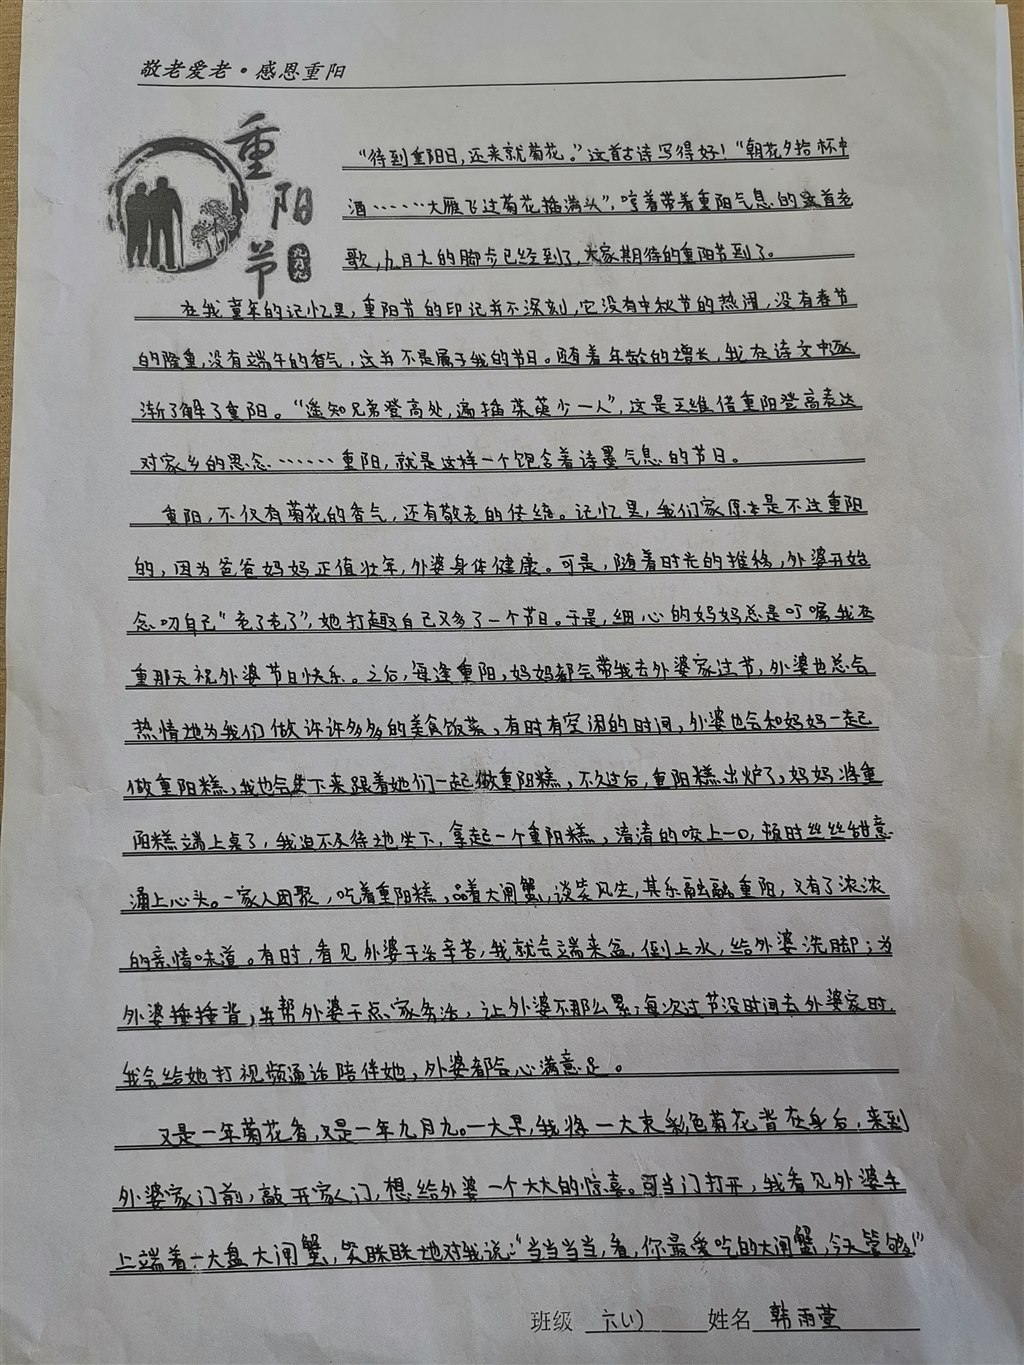 敬老爱老·感恩重阳
重阳节
九月九
“待到重阳日,还来就菊花。”这首古诗写得好!“朝花夕拾杯中
酒……大雁飞过菊花插满头”,哼着带着重阳气息的这首老
歌,九月九的脚步已经到了,大家期待的重阳节到了。
在我童年的记忆里,重阳节的印记并不深刻,它没有中秋节的热闹,没有春节
的隆重,没有端午的香气,这并不是属于我的节日。随着年龄的增长,我在诗文中逐
渐了解了重阳。“遥知兄弟登高处,遍插茱萸少一人”,这是王维借重阳登高表达
对家乡的思念……重阳,就是这样一个饱含着诗墨气息的节日。
重阳,不仅有菊花的香气,还有敬老的传统。记忆里,我们家原本是不过重阳
的,因为爸爸妈妈正值壮年,外婆身体健康。可是,随着时光的推移,外婆开始
念叨自己“老了老了”,她打趣自己又多了一个节日。于是,细心的妈妈总是叮嘱我在
重那天祝外婆节日快乐。之后,每逢重阳,妈妈都会带我去外婆家过节,外婆也总会
热情地为我们做许许多多的美食饭菜,有时有空闲的时间,外婆也会和妈妈一起
做重阳糕,我也会坐下来跟着她们一起做重阳糕,不久过后,重阳糕出炉了,妈妈将重
阳糕端上桌了,我迫不及待地坐下,拿起一个重阳糕,清清的咬上一口,顿时丝丝甜意
涌上心头。一家人团聚,吃着重阳糕,品着大闸蟹,谈笑风生,其乐融融重阳,又有了浓浓
的亲情味道。有时,看见外婆干活辛苦,我就会端来盆,倒上水,给外婆洗脚;为
外婆捶捶背;我帮外婆干点家务活,让外婆不那么累;每次过节没时间去外婆家时,
我会给她打视频通话陪伴她,外婆都会心满意足。
又是一年菊花香,又是一年九月九。一大早,我将一大束彩色菊花背在身后,来到
外婆家门前,敲开家门,想给外婆一个大大的惊喜。可当门打开,我看见外婆手
上端着一大盘大闸蟹,笑眯眯地对我说:“当当当当,看,你最爱吃的大闸蟹,今天管够!”
班级 六(1) 姓名 韩雨萱